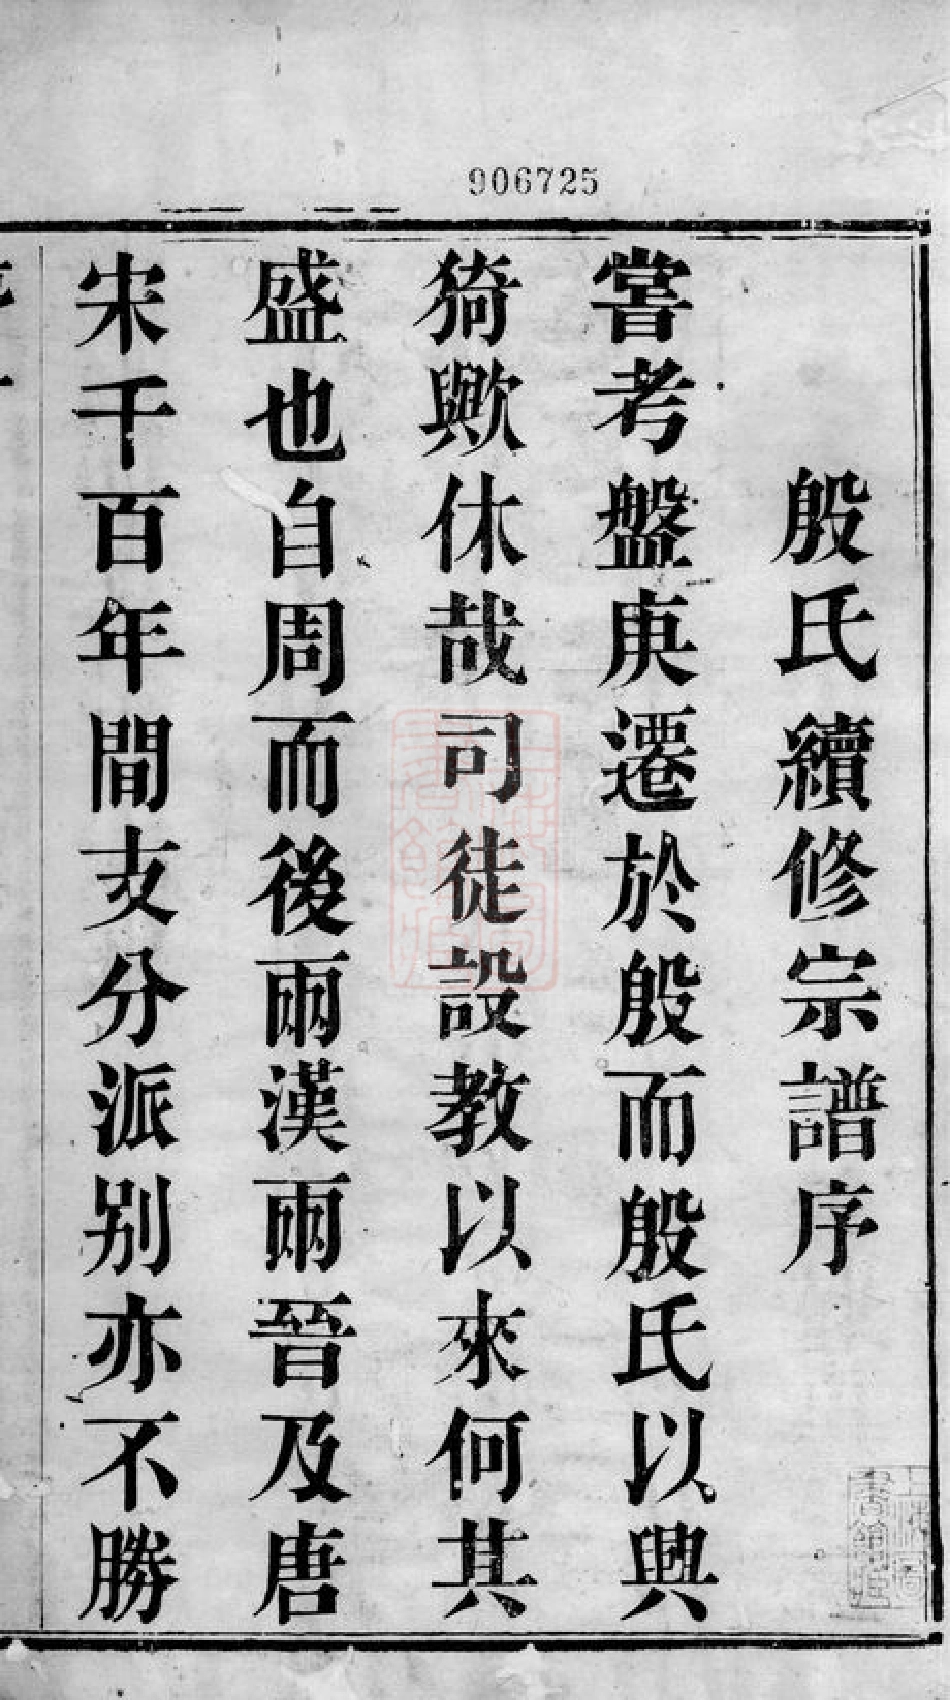 906725
殷氏續修宗譜序
嘗考盤庚遷於殷而殷氏以興
猗歟休哉司徒設教以來何其
盛也自周而後兩漢兩晉及唐
宋千百年間支分派别亦不勝
上海圖書館藏